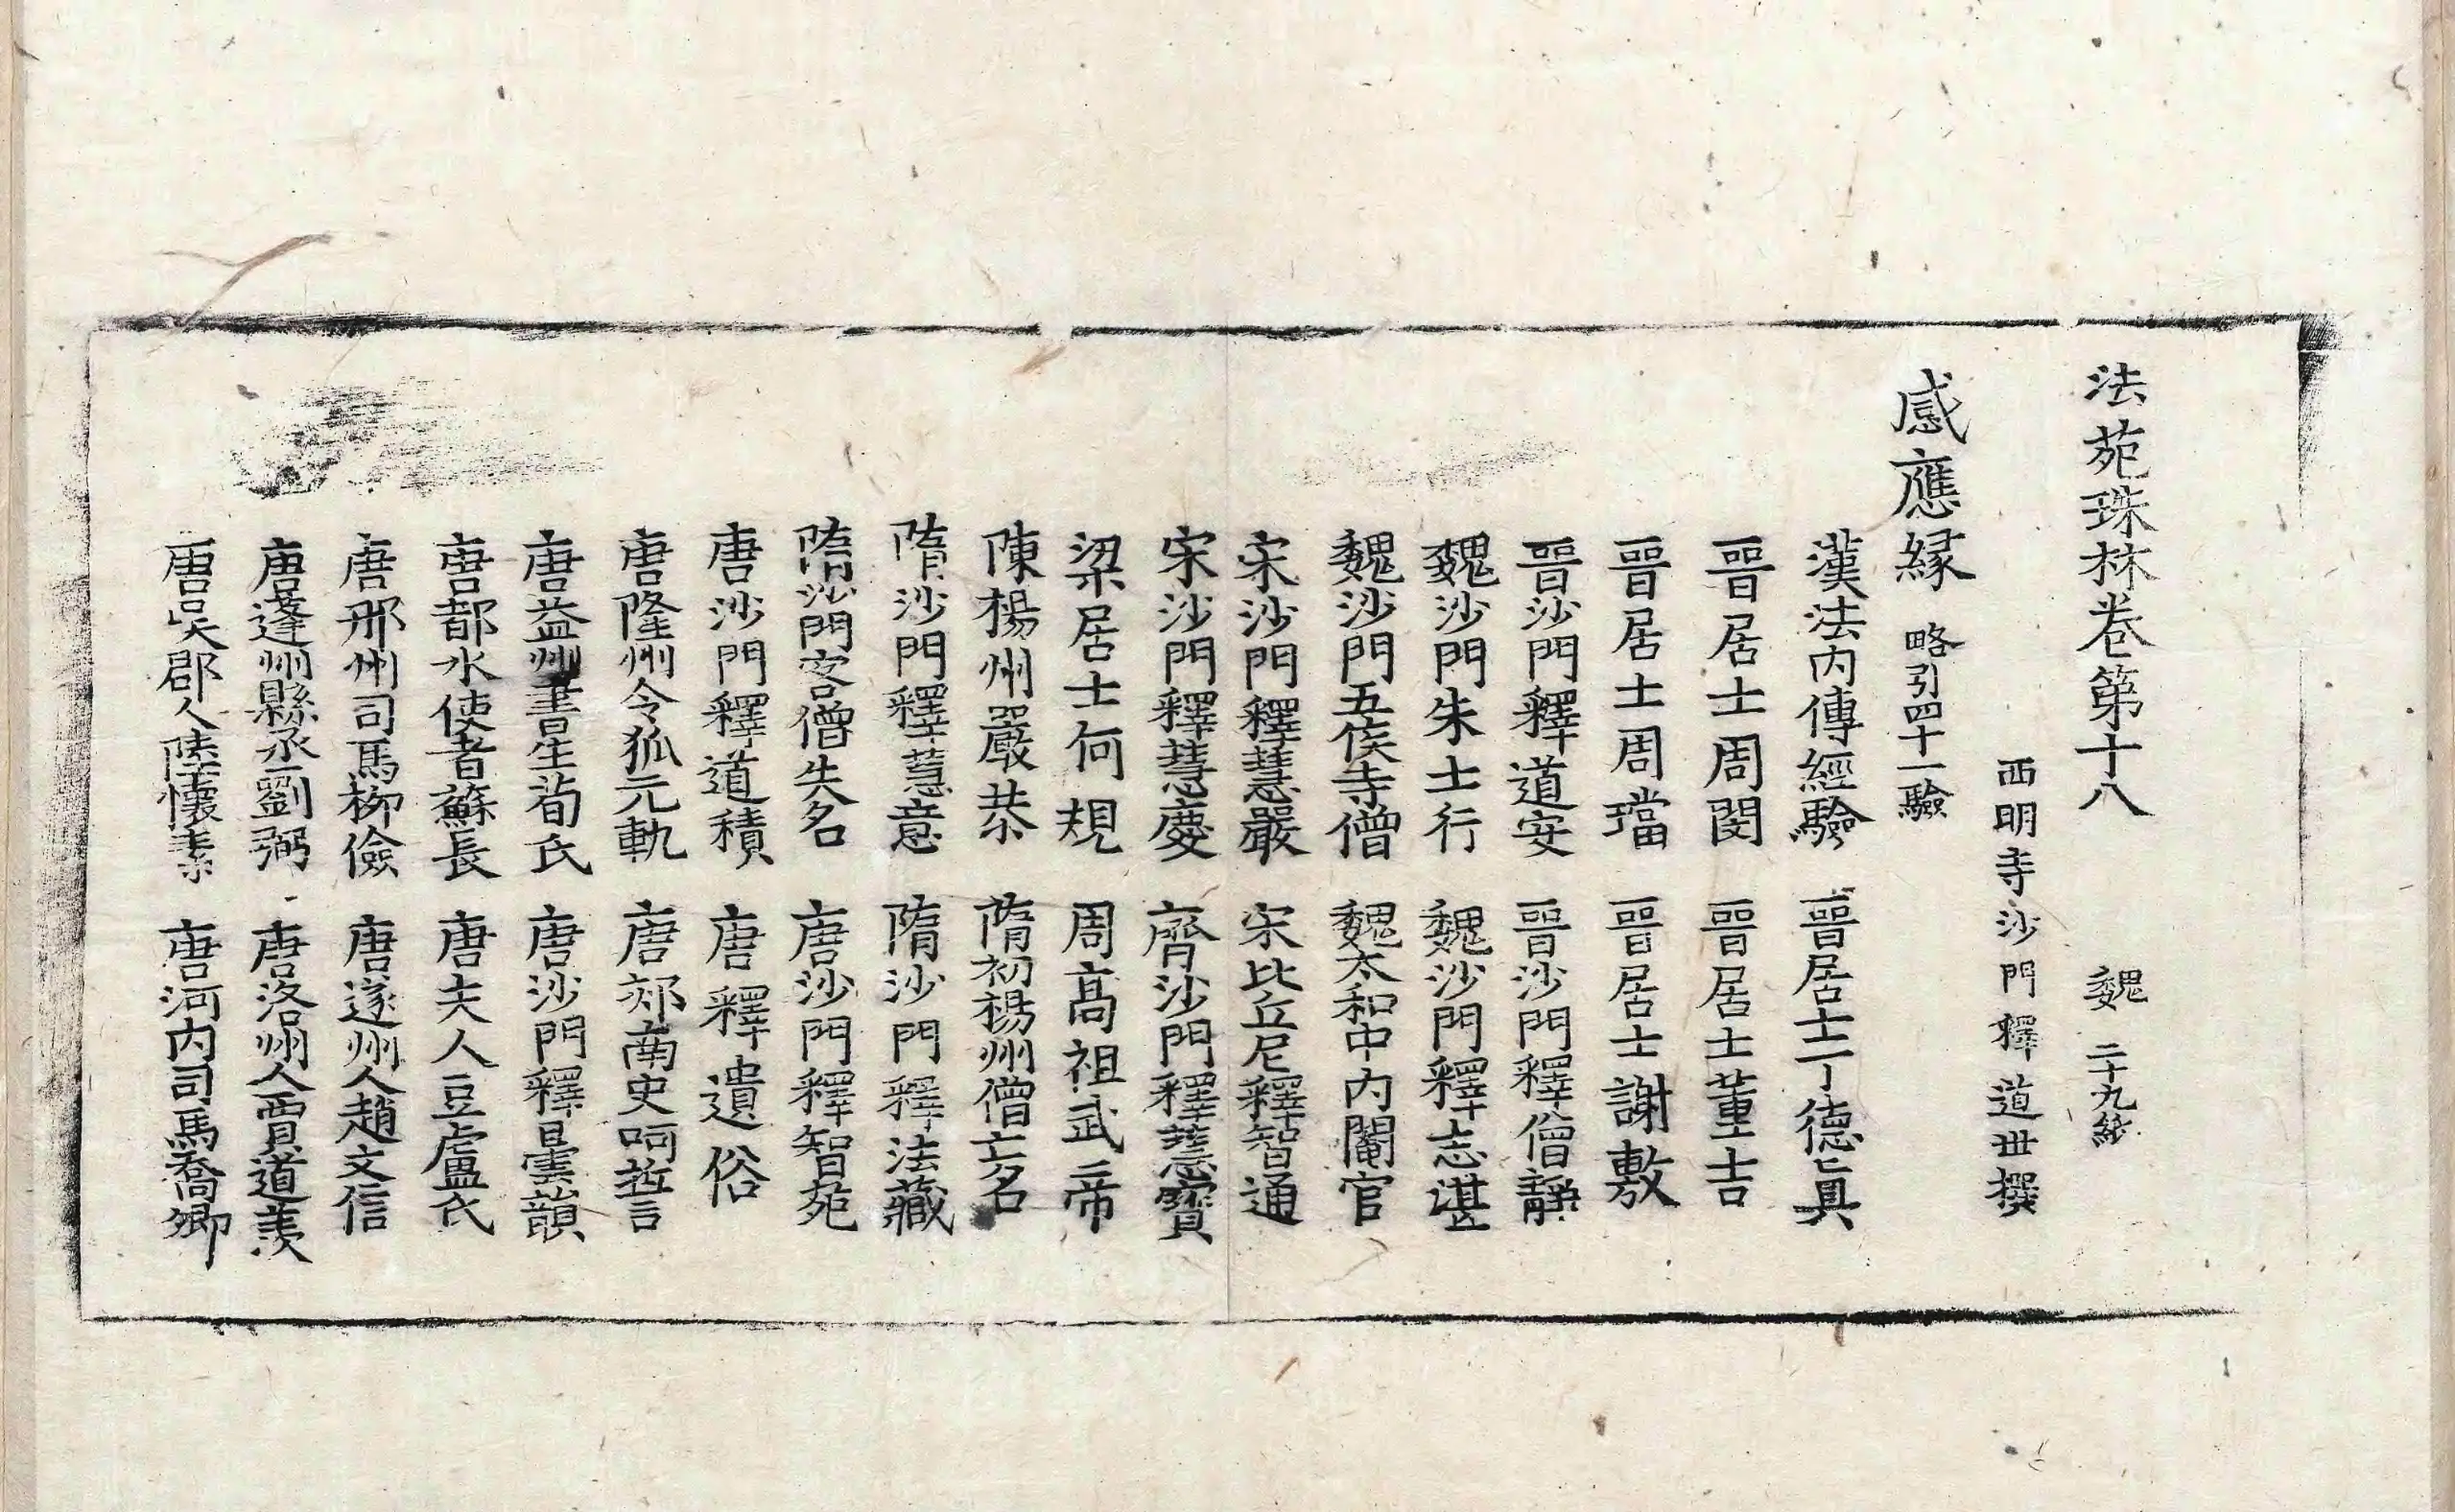 法苑珠林卷第十八 魏 二十九紙
西明寺沙門釋道世撰
感應緣 略引四十一驗
漢法內傳經驗 晉居士丁德真
晉居士周閔 晉居士董吉
晉居士周璫 晉居士謝敷
晉沙門釋道安 晉沙門釋僧靜
魏沙門朱士行 魏沙門釋志湛
魏沙門五侯寺僧 魏太和中內閹官
宋沙門釋慧嚴 宋比丘尼釋智通
宋沙門釋慧慶 齊沙門釋慧寶
梁居士何規 周高祖武帝
陳楊州嚴恭 隋初楊州僧亡名
隋沙門釋慧意 隋沙門釋法藏
隋沙門客僧失名 唐沙門釋智苑
唐沙門釋道積 唐釋遺俗
唐隆州令狐元軌 唐郊南史呵誓
唐益州書生荀氏 唐沙門釋曇韻
唐都水使者蘇長 唐夫人豆盧氏
唐邢州司馬柳儉 唐遂州人趙文信
唐蓬州縣丞劉弼 唐洛州人賈道羨
唐吳郡人陸懷素 唐河內司馬喬卿